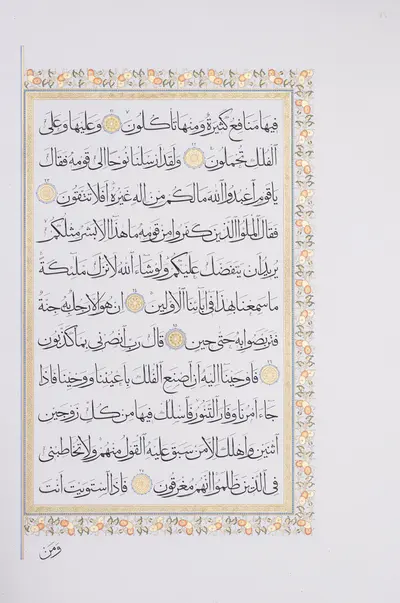 فيها منافع كثيرة ومنها تأكلون ۝ وعليها وعلى
الفلك تحملون ۝ ولقد ارسلنا نوحا الى قومه فقال
يا قوم اعبدوا الله مالكم من اله غيره افلا تتقون ۝
فقال الملؤا الذين كفروا من قومه ما هذا الا بشر مثلكم
يريد ان يتفضل عليكم ولو شاء الله لانزل ملئكة
ما سمعنا بهذا في ابائنا الاولين ۝ ان هو الا رجل به جنة
فتربصوا به حتى حين ۝ قال رب انصرني بما كذبون
۝ فاوحينا اليه ان اصنع الفلك باعيننا ووحينا فاذا
جاء امرنا وفار التنور فاسلك فيها من كل زوجين
اثنين واهلك الا من سبق عليه القول منهم ولا تخاطبني
في الذين ظلموا انهم مغرقون ۝ فاذا استويت انت
ومن